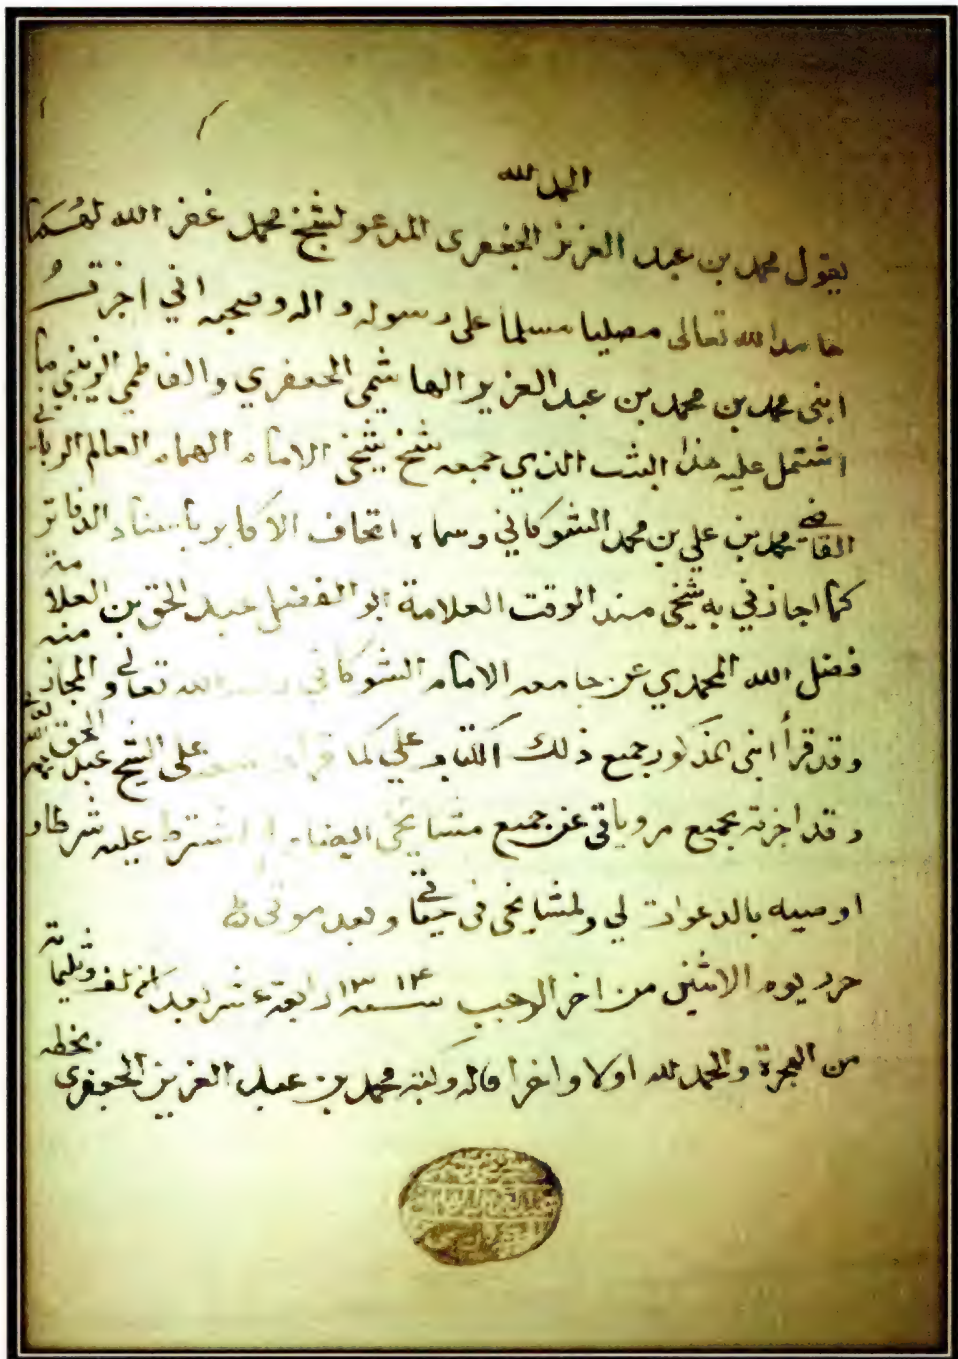 الحمد لله
يقول محمد بن عبد العزيز الجعفرى المدعو لشيخ محمد غفر الله لهما
حامدا لله تعالى مصليا مسلما على رسوله واله وصحبه اني اجزت
ابنى محمد بن محمد بن عبد العزيز الهاشمي الجعفري والفاطمي الزينبي بما
اشتمل عليه هذا الثبت الذي جمعه شيخ شيخى الامام الهمام العالم الرباني
القاضي محمد بن علي بن محمد الشوكاني وسماه اتحاف الاكابر باسناد الدفاتر
كما اجازني به شيخى مسند الوقت العلامة ابو الفضل عبد الحق بن العلامة
فضل الله المحمدي عن جامعه الامام الشوكاني الله تعالى والمجاز منه
وقد قرأ ابنى المذكور جميع ذلك الكتاب علي كما على الشيخ عبد الحق
وقد اجزته بجميع مروياتى عن جميع مشايخى ايضا اشترط عليه شرطا و
اوصيه بالدعوات لي ولمشايخى فى حياتي وبعد موتى
حرر يوم الاثنين من اخر الرجب سنه ١٣١٤ رابعة عشر بعد الف وثليماية
من الهجرة والحمد لله اولا واخرا قاله وكتبه محمد بن عبد العزيز الجعفرى بخطه